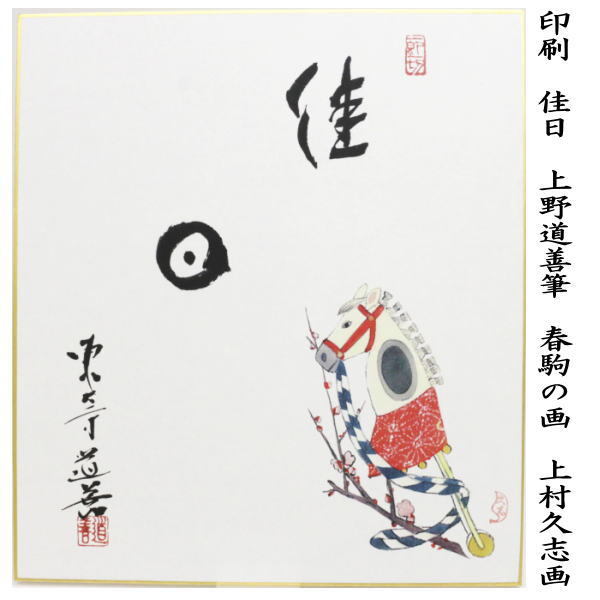 印刷　佳日　上野道善筆　春駒の画　上村久志画
佳
日
東大寺道善
道善